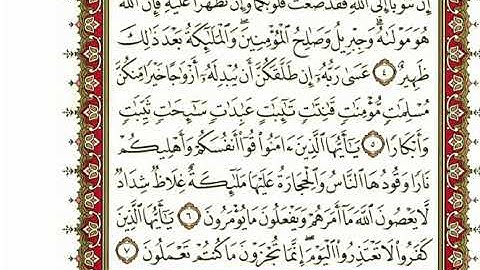 إِن تَتُوبَآ إِلَى ٱللَّهِ فَقَدْ صَغَتْ قُلُوبُكُمَا وَإِن تَظَٰهَرَا عَلَيْهِ فَإِنَّ ٱللَّهَ
هُوَ مَوْلَىٰهُ وَجِبْرِيلُ وَصَٰلِحُ ٱلْمُؤْمِنِينَ وَٱلْمَلَٰٓئِكَةُ بَعْدَ ذَٰلِكَ
ظَهِيرٌ ٤ عَسَىٰ رَبُّهُۥٓ إِن طَلَّقَكُنَّ أَن يُبْدِلَهُۥٓ أَزْوَٰجًا خَيْرًا مِّنكُنَّ
مُسْلِمَٰتٍ مُّؤْمِنَٰتٍ قَٰنِتَٰتٍ تَٰٓئِبَٰتٍ عَٰبِدَٰتٍ سَٰٓئِحَٰتٍ ثَيِّبَٰتٍ
وَأَبْكَارًا ٥ يَٰٓأَيُّهَا ٱلَّذِينَ ءَامَنُوا۟ قُوٓا۟ أَنفُسَكُمْ وَأَهْلِيكُمْ
نَارًا وَقُودُهَا ٱلنَّاسُ وَٱلْحِجَارَةُ عَلَيْهَا مَلَٰٓئِكَةٌ غِلَاظٌ شِدَادٌ
لَّا يَعْصُونَ ٱللَّهَ مَآ أَمَرَهُمْ وَيَفْعَلُونَ مَا يُؤْمَرُونَ ٦ يَٰٓأَيُّهَا ٱلَّذِينَ
كَفَرُوا۟ لَا تَعْتَذِرُوا۟ ٱلْيَوْمَ إِنَّمَا تُجْزَوْنَ مَا كُنتُمْ تَعْمَلُونَ ٧